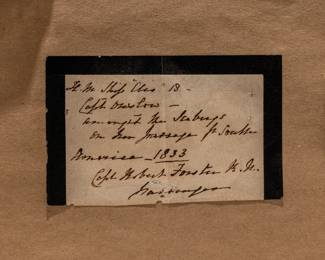 H. M. Ship "Clio" 18 -
Capt Onslow -
amongst the Icebergs
on her passage fr South
America - 1833
Capt Robert Forster R. N.